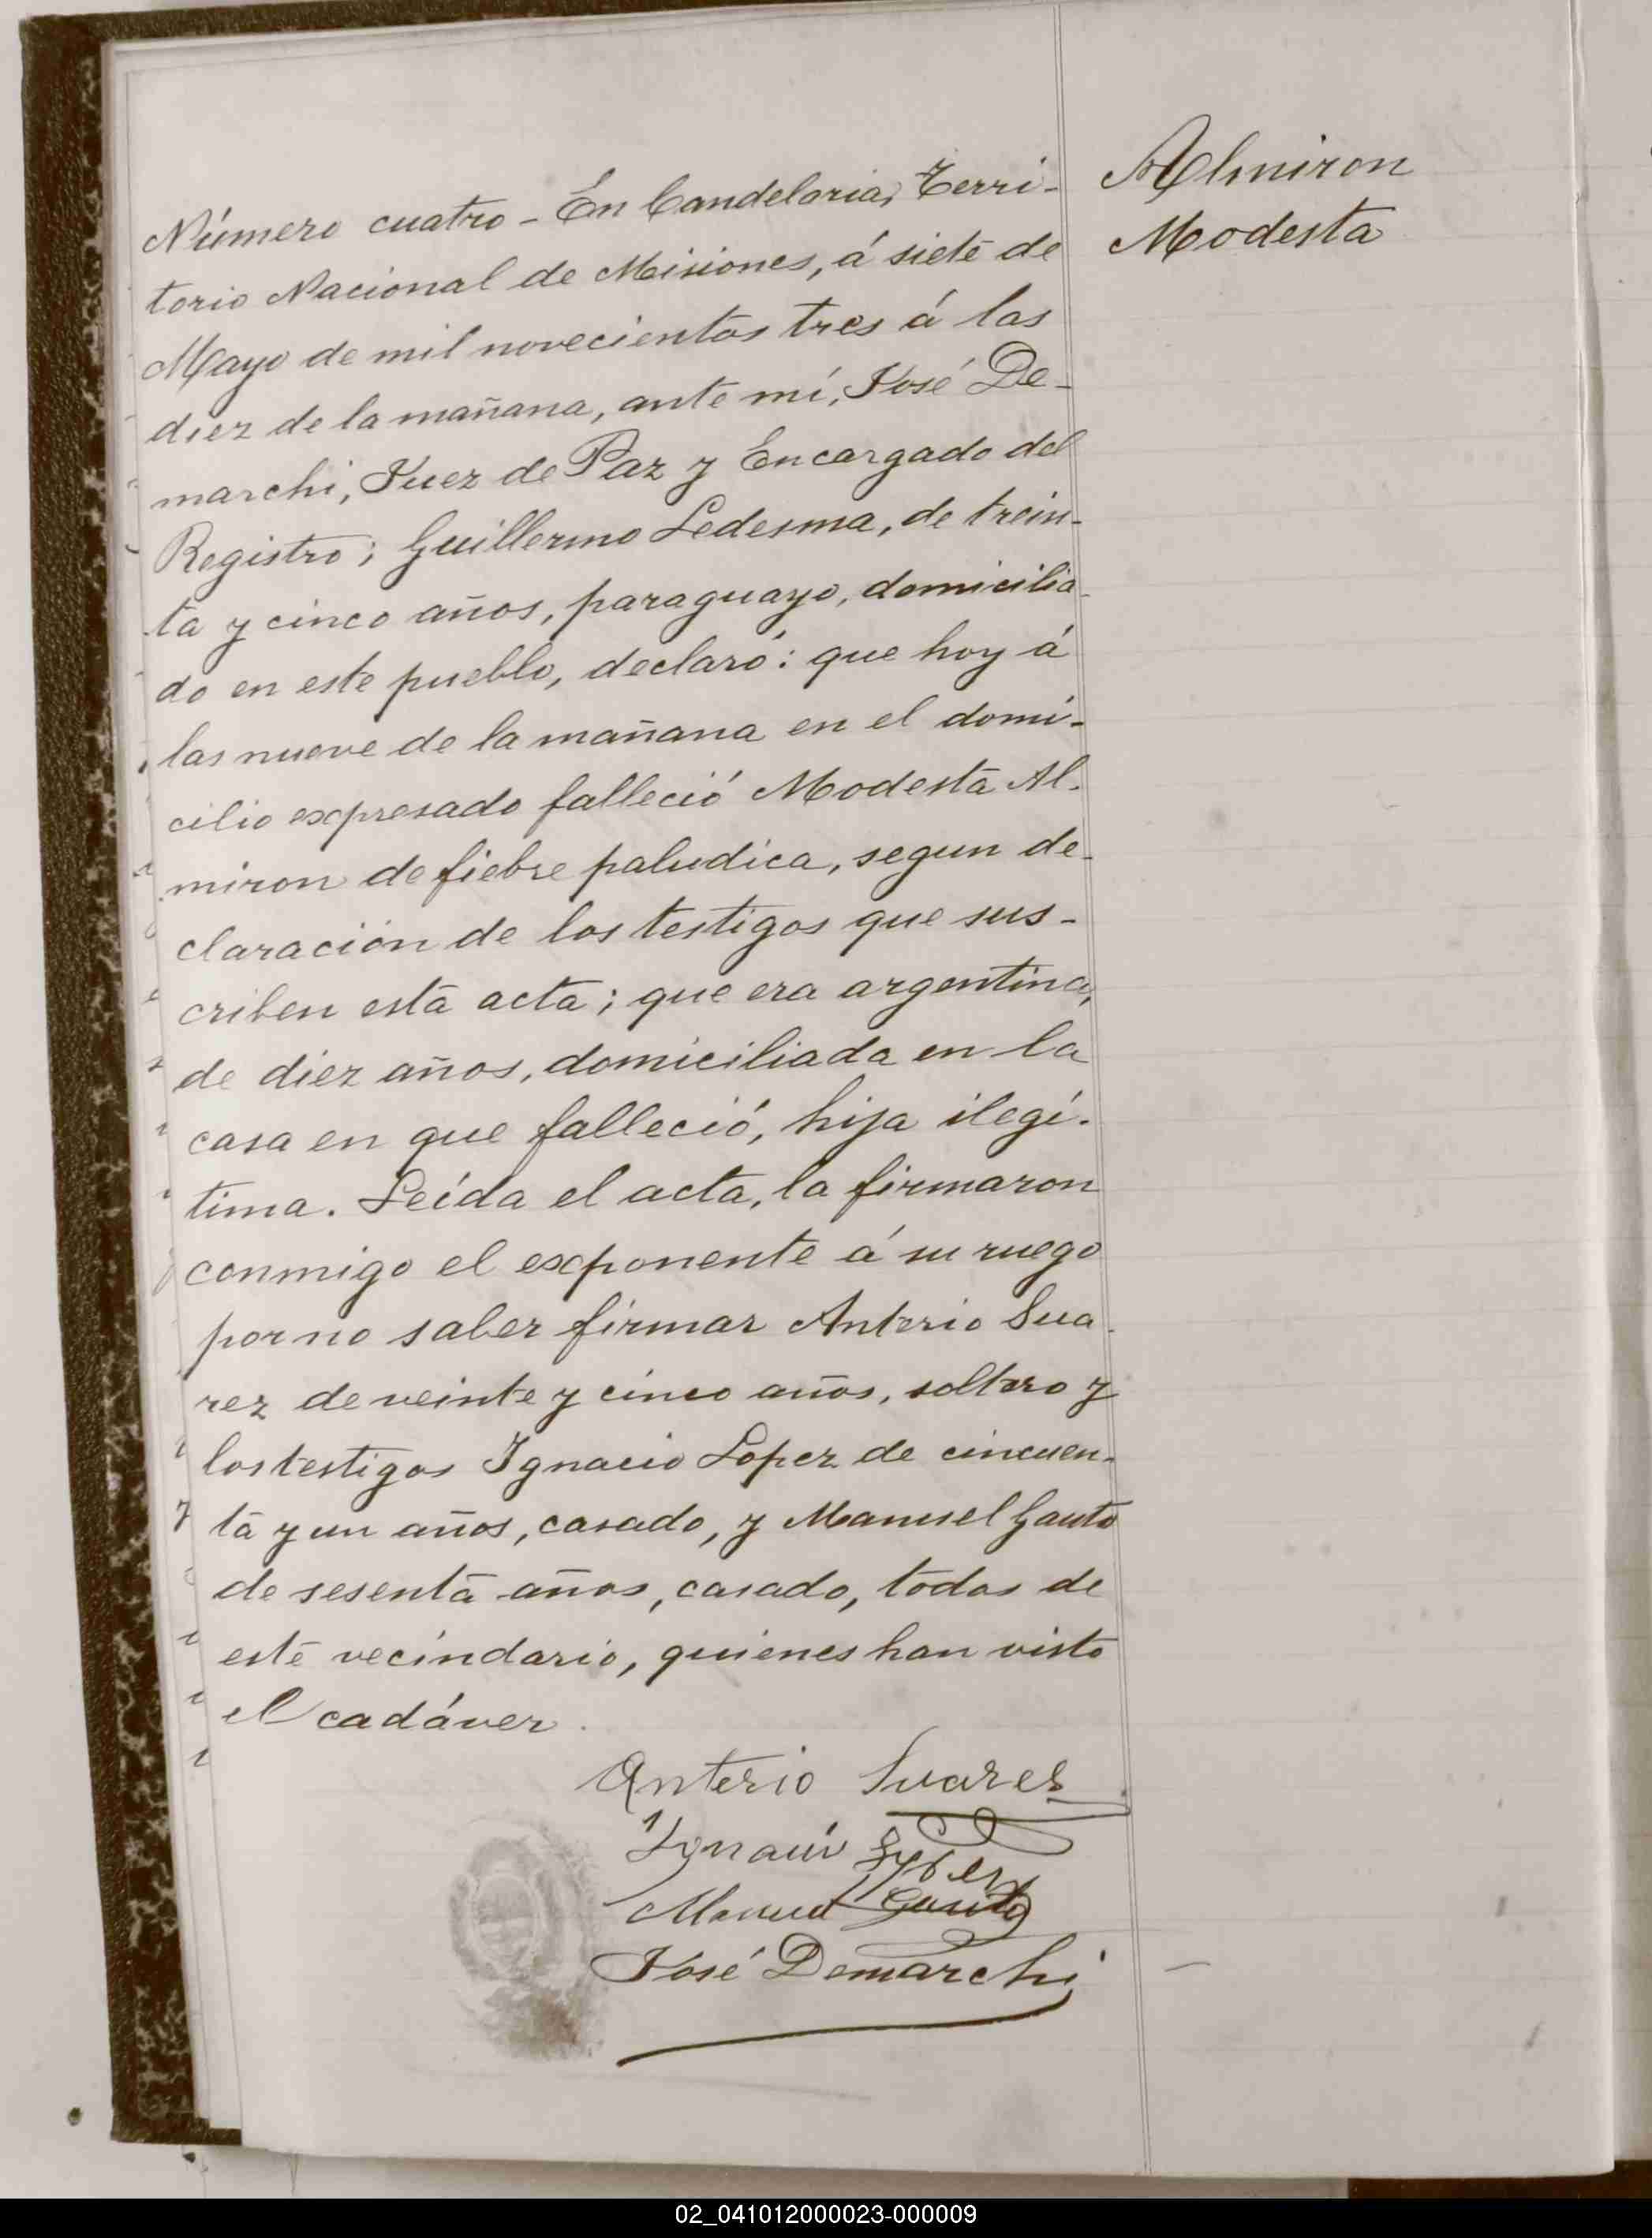 Almiron
Modesta
Número cuatro - En Candelaria, Terri-
torio Nacional de Misiones, á siete de
Mayo de mil novecientos tres á las
diez de la mañana, ante mí, José De-
marchi, Juez de Paz y Encargado del
Registro; Guillermo Ledesma, de trein-
ta y cinco años, paraguayo, domicilia-
do en este pueblo, declaró: que hoy á
las nueve de la mañana en el domi-
cilio expresado falleció Modesta Al-
miron de fiebre paludica, segun de-
claración de los testigos que sus-
criben esta acta; que era argentina,
de diez años, domiciliada en la
casa en que falleció, hija ilegí-
tima. Leída el acta, la firmaron
conmigo el exponente á su ruego
por no saber firmar Anterio Sua-
rez de veinte y cinco años, soltero y
los testigos Ignacio Lopez de cincuen-
ta y un años, casado, y Manuel Gauto
de sesenta años, casado, todos de
este vecindario, quienes han visto
el cadáver.
Anterio Suares
Ygnacio Lopez
Manuel Gauto
José Demarchi
02_041012000023-000009